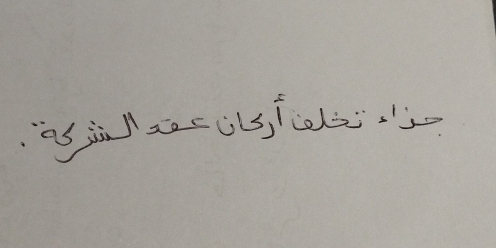 جزاء تخلف أركان عقد الشركة.